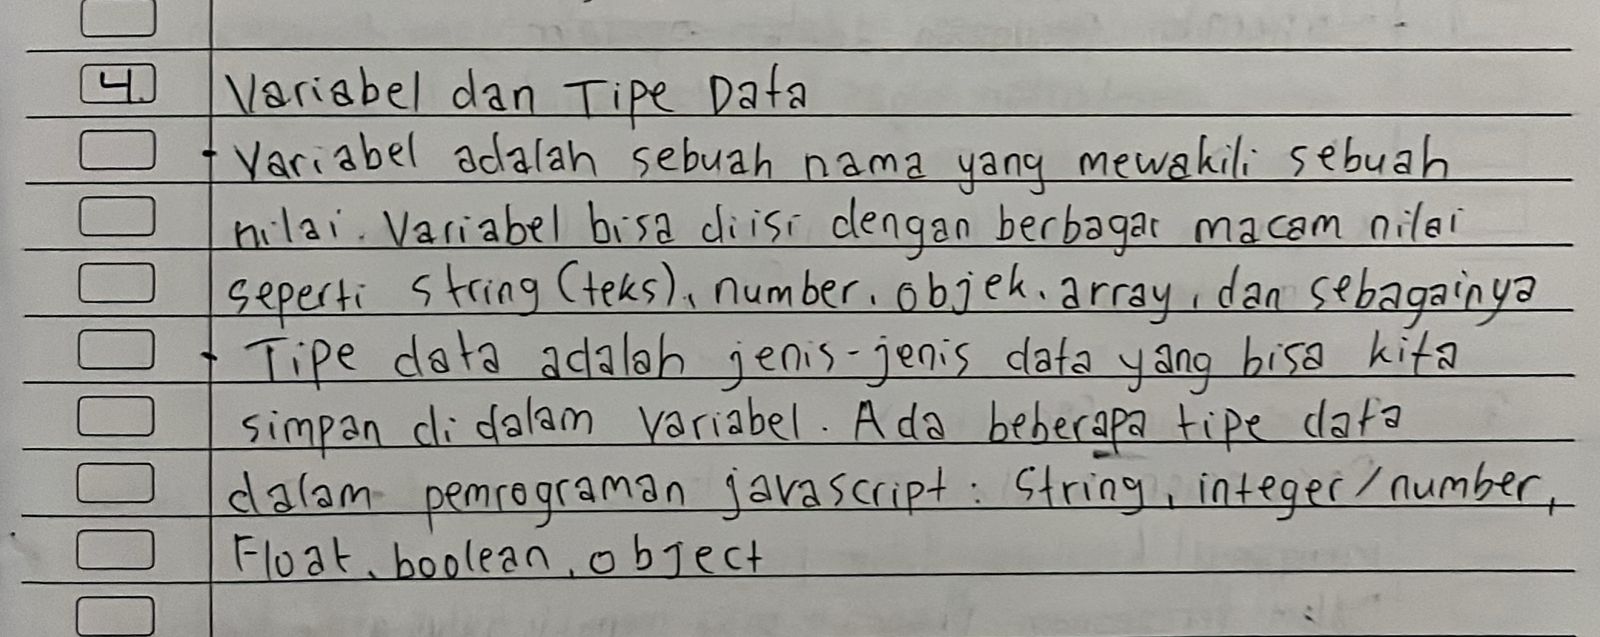 4. Variabel dan Tipe Data
- Variabel adalah sebuah nama yang mewakili sebuah
nilai. Variabel bisa diisi dengan berbagai macam nilai
seperti string (teks), number, objek, array, dan sebagainya
- Tipe data adalah jenis-jenis data yang bisa kita
simpan di dalam variabel. Ada beberapa tipe data
dalam pemrograman javascript : String, integer/number,
Float, boolean, object